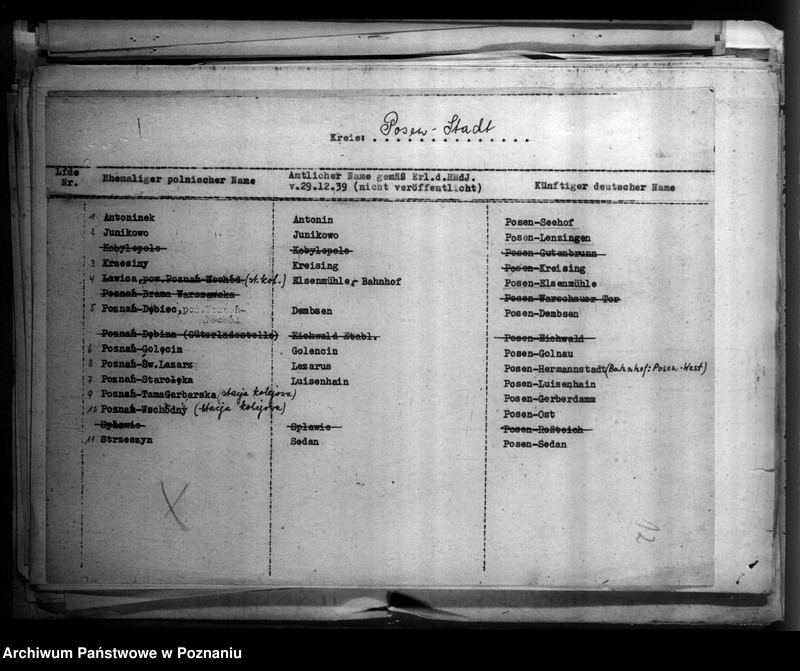 Kreis: Posen-Stadt
Lfde Nr. Ehemaliger polnischer Name Amtlicher Name gemäß Erl.d.RMdJ. v.29.12.39 (nicht veröffentlicht) Künftiger deutscher Name
1 Antoninek Antonin Posen-Seehof
2 Junikowo Junikowo Posen-Lenzingen
Kobylepole Kobylepole Posen-Gutenbrunn
3 Krzesiny Kreising Posen-Kreising
4 Ławica, pow. Poznań-Wschód (st. kol.) Elsenmühle, Bahnhof Posen-Elsenmühle
Poznań-Brama Warszawska Posen-Warschauer Tor
5 Poznań-Dębiec, pow. Poznań-Wschód Dembsen Posen-Dembsen
Poznań-Dębina (Güterladestelle) Eichwald Etabl. Posen-Eichwald
6 Poznań-Golęcin Golencin Posen-Golnau
8 Poznań-Św.Łazarz Lazarus Posen-Hermannstadt (Bahnhof: Posen-West)
7 Poznań-Starołęka Luisenhain Posen-Luisenhain
9 Poznań-TamaGarbarska (stacja kolejowa) Posen-Gerberdamm
10 Poznań-Wschódny (stacja kolejowa) Posen-Ost
Spławie Spławie Posen-Roßteich
11 Strzeszyn Sedan Posen-Sedan
12
Archiwum Państwowe w Poznaniu